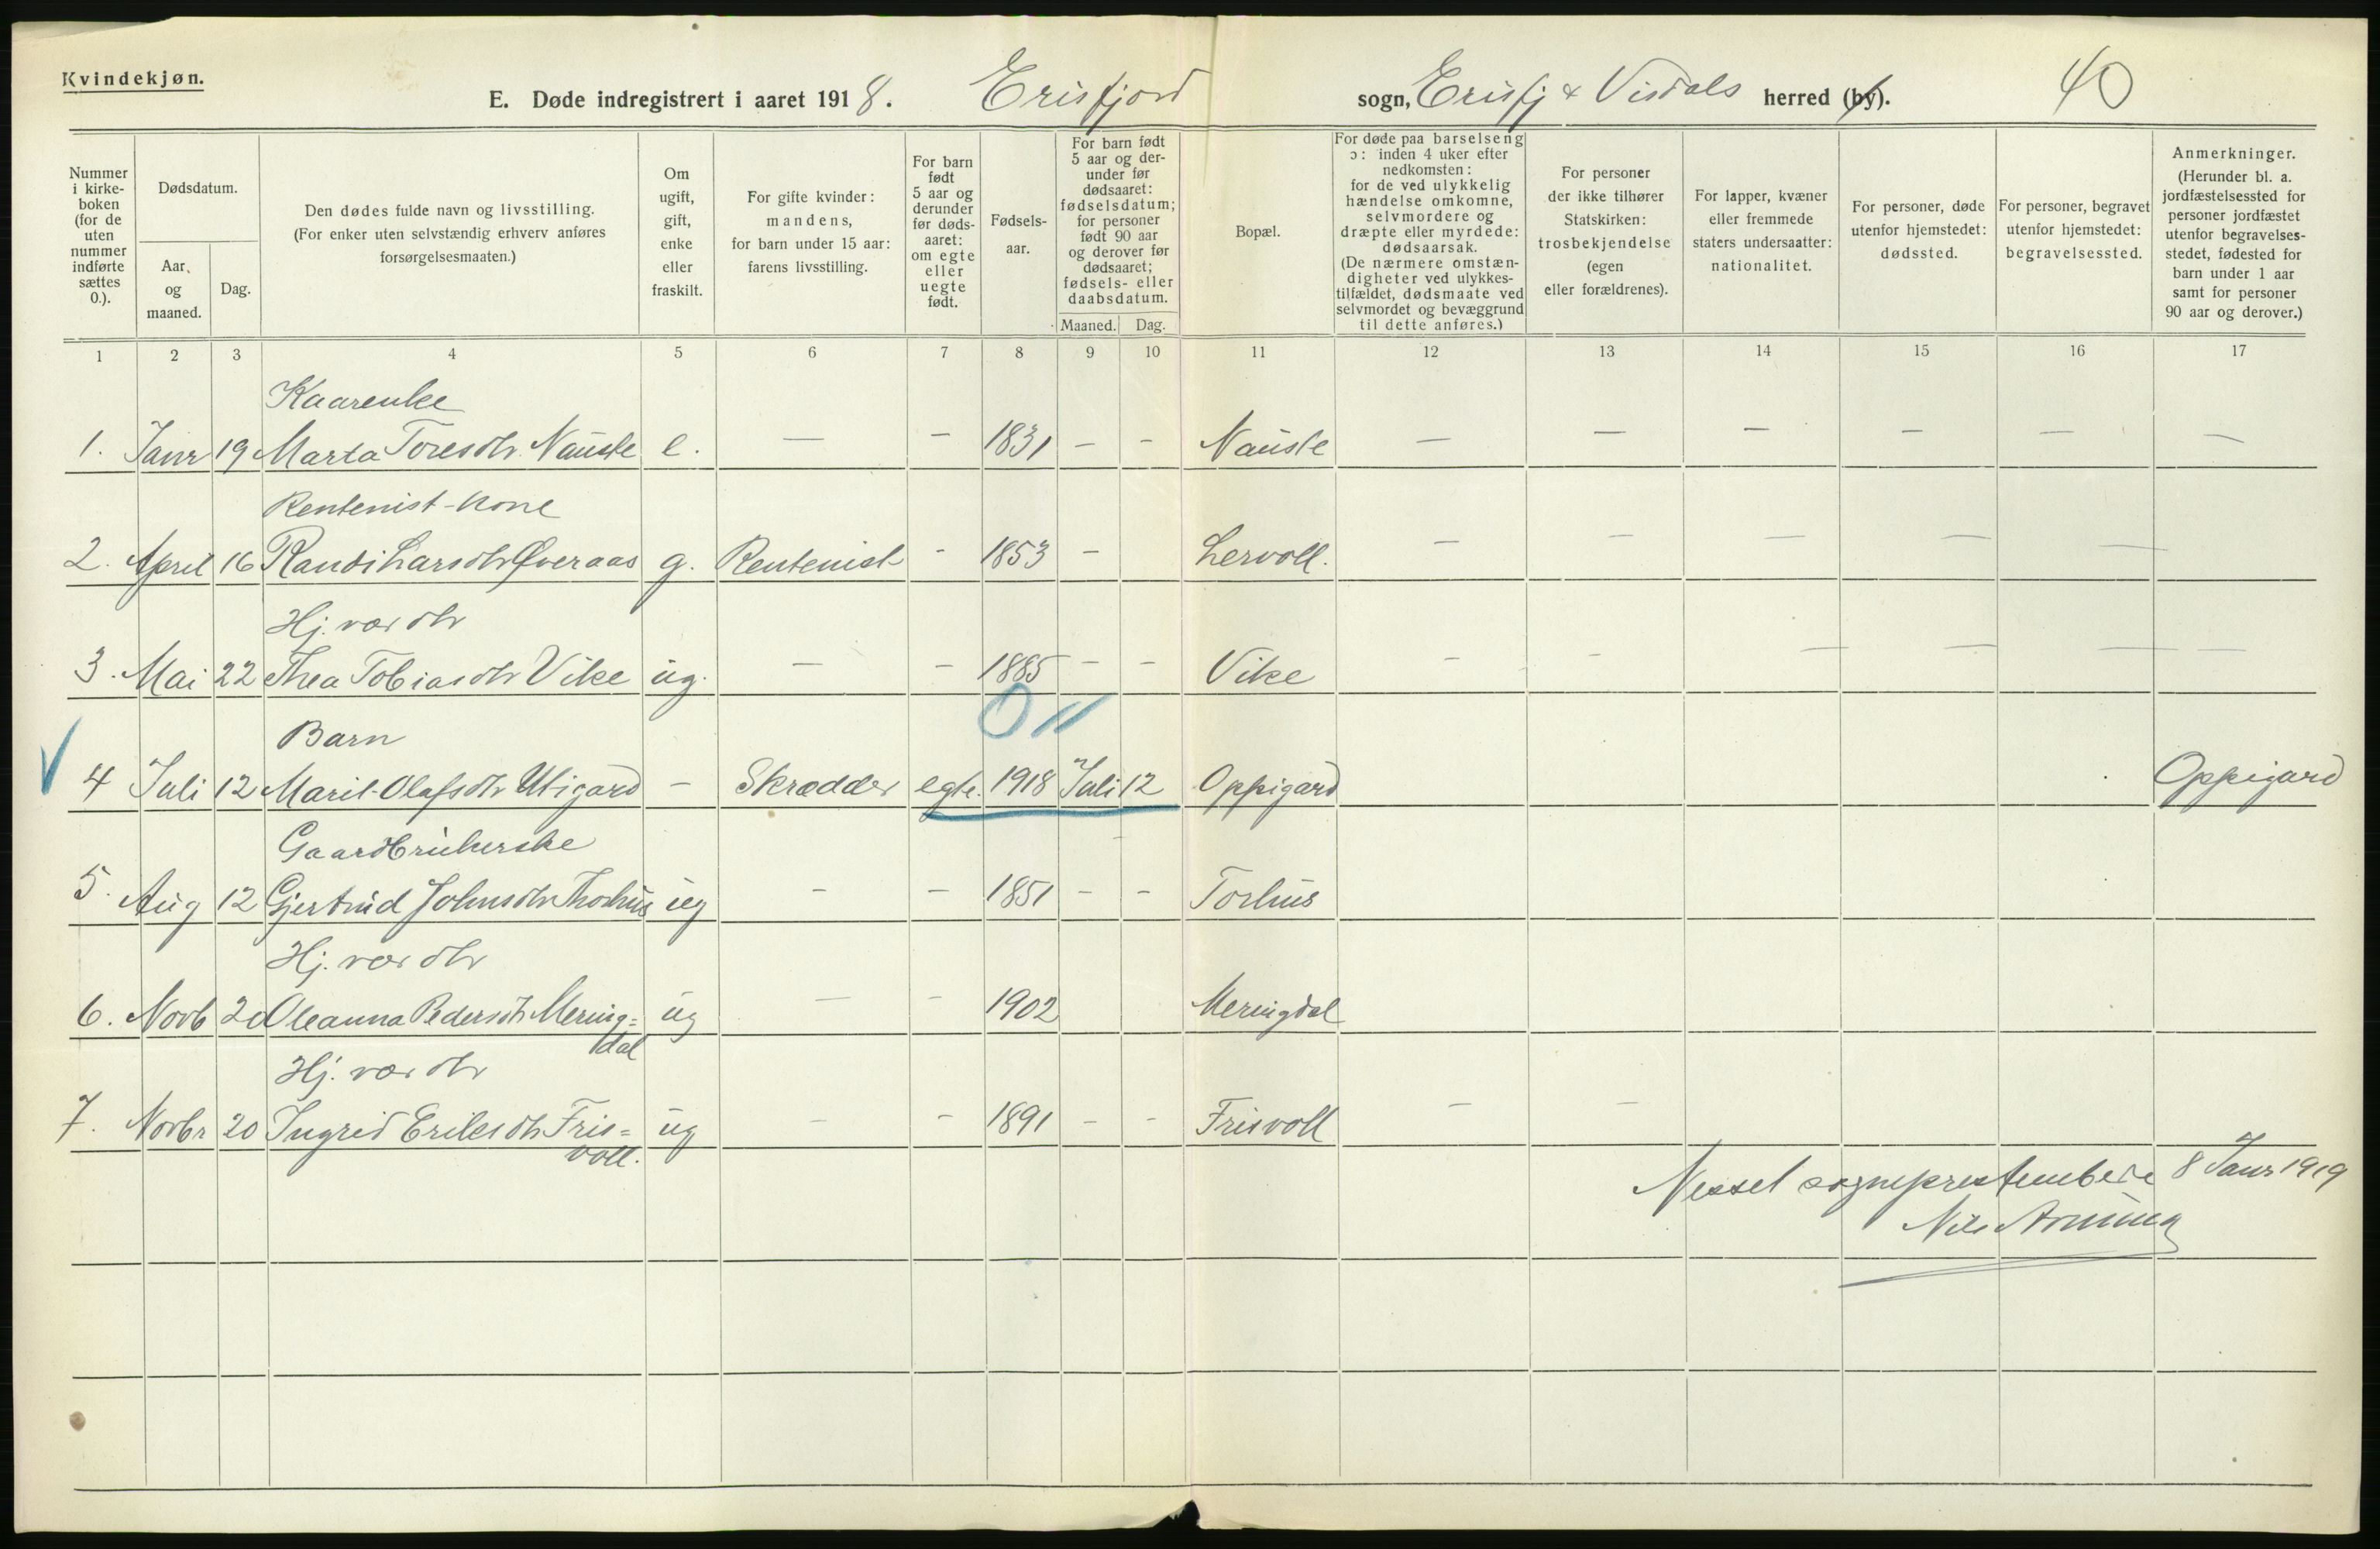 Kvindekjøn.
E. Døde indregistrert i aaret 1918. Erisfjord sogn, Erisfj & Visdals herred (by). 40
Nummer i kirke-boken (for de uten nummer indførte sættes 0.).
Dødsdatum.
Aar, og maaned.
Dag.
Den dødes fulde navn og livsstilling. (For enker uten selvstændig erhverv anføres forsørgelsesmaaten.)
Om ugift, gift, enke eller fraskilt.
For gifte kvinder: mandens, for barn under 15 aar: farens livsstilling.
For barn født 5 aar og derunder før døds-aaret: om egte eller uegte født.
Fødsels-aar.
For barn født 5 aar og der-under før dødsaaret: fødselsdatum; for personer født 90 aar og derover før dødsaaret; fødsels- eller daabsdatum.
Maaned. Dag.
Bopæl.
For døde paa barselseng ɔ: inden 4 uker efter nedkomsten: for de ved ulykkelig hændelse omkomne, selvmordere og dræpte eller myrdede: dødsaarsak. (De nærmere omstæn-digheter ved ulykkes-tilfældet, dødsmaate ved selvmordet og bevæggrund til dette anføres.)
For personer der ikke tilhører Statskirken: trosbekjendelse (egen eller forældrenes).
For lapper, kvæner eller fremmede staters undersaatter: nationalitet.
For personer, døde utenfor hjemstedet: dødssted.
For personer, begravet utenfor hjemstedet: begravelsessted.
Anmerkninger. (Herunder bl. a. jordfæstelsessted for personer jordfæstet utenfor begravelses-stedet, fødested for barn under 1 aar samt for personer 90 aar og derover.)
1 2 3 4 5 6 7 8 9 10 11 12 13 14 15 16 17
Kaarenke
1. Janr 19 Marta Toresdtr Nauste e. — — 1831 - - Nauste — — — — — —
Rentenist-kone
2. April 16 Randi Larsdtr Øveraas g. Rentenist - 1853 - Lervoll. — — — — —
Hj. vær dtr
3. Mai 22 Thea Tobiasdtr Vike ug. — — 1885 - - Vike - - — — — —
0 11
Barn
4 Juli 12 Marit Olafsdtr Utigard - Skrædder egte. 1918 Juli 12 Oppigard Oppigard
Gaardbrukerske
5. Aug 12 Gjertrud Johnsdtr Thorhus ug - - 1851 - - Torhus
Hj. vær dtr
6. Novb 20 Oleanna Pedersdtr Mering= ug — - 1902 Meringdal
dal
Hj. vær dtr
7. Novbr 20 Ingrid Eriksdtr Fris= ug - - 1891 - - Frisvoll - -
voll.
Nesset sogneprestembede 8 Janr 1919
Nils